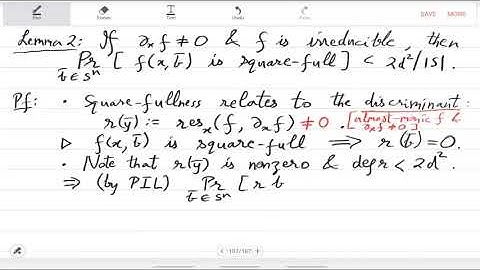 Pen
Eraser
Text
Undo
Redo
SAVE MORE
Lemma 2: If ∂ₓf ≠ 0 & f is irreducible, then
Pr [ f(x, b̄) is square-full ] < 2d²/|S|.
b̄ ∈ Sⁿ
Pf: • Square-fullness relates to the discriminant:
r(ȳ) := resₓ(f, ∂ₓf) ≠ 0. [almost-monic f & ∂ₓf ≠ 0]
▷ f(x, b̄) is square-full ⟹ r(b̄) = 0.
• Note that r(ȳ) is nonzero & deg r < 2d².
⟹ (by PIL) Pr [ r b
b̄ ∈ Sⁿ